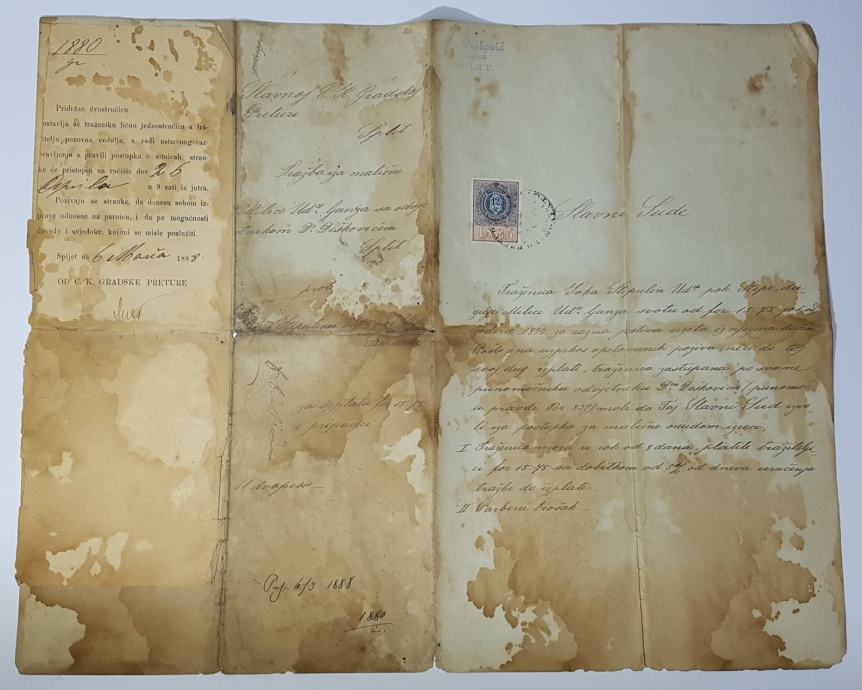 1880
Pridržav dvostručicu
ostavlja se traženiku lično jednostručica a tra-
žitelju pozovna cedulja, a radi ustmenog raz-
pravljenja s pravili postupka o sitnicah, stran-
ke će pristupiti na ročište dne 26
Aprila u 9 sati iz jutra.
Pozivaju se stranke, da donesu sobom iz-
prave odnosne na parnicu, i da po mogućnosti
dovedu i svjedoke, kojimi se misle poslužiti.
Spljet na 6 Marča 1888
OD C. K. GRADSKE PRETURE
Slavnoj C. K. Gradskoj
Preturi
Split
Tražba za malične
Milice Ud.e Ganza sa odvje
tnikom D.r Deškovićem
Split
prot
za izplatu for 15.75
i pripadci
U dvopisu
6/3 1888
1880
Dešković
12
Slavni Sude
Traženica Joka Stipulin Ud.a pok Stipe, du
guje Milici Ud.i Ganza svotu od for 15.75 još od
godine 1884 za razna pitiva uzeta iz njezina dućana
Pošto ona uzprkos opetovanih poziva neće da te
svoj dug izplati, traženica zastupana po svome
punomoćniku odvjetniku D.ru Deškoviću (punomoć
u pravdi Br. ) moli da Taj Slavni Sud izvo
li iza postupka za malične osudom izreći
I Traženica mora u rok od 8 dana platiti tražitelji
ci for 15.75 sa dobitkom od 5% od dneva uručenja
tražbe do izplate.
II Parbeni trošak.